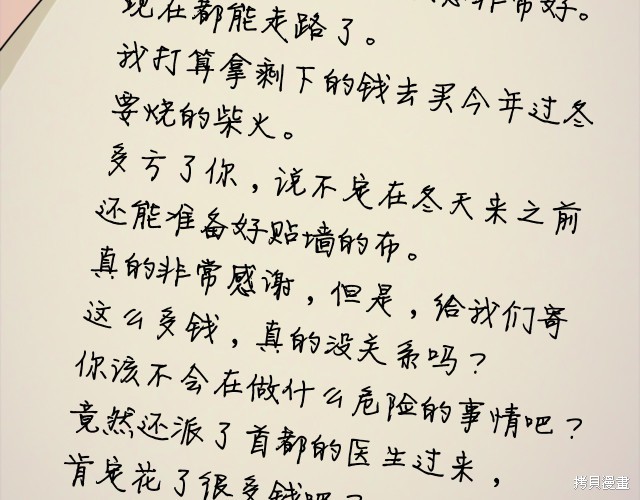 现在都能走路了。
我打算拿剩下的钱去买今年过冬
要烧的柴火。
多亏了你，说不定在冬天来之前
还能准备好贴墙的布。
真的非常感谢，但是，给我们寄
这么多钱，真的没关系吗？
你该不会在做什么危险的事情吧？
竟然还派了首都的医生过来，
肯定花了很多钱吧？
拷貝漫畫